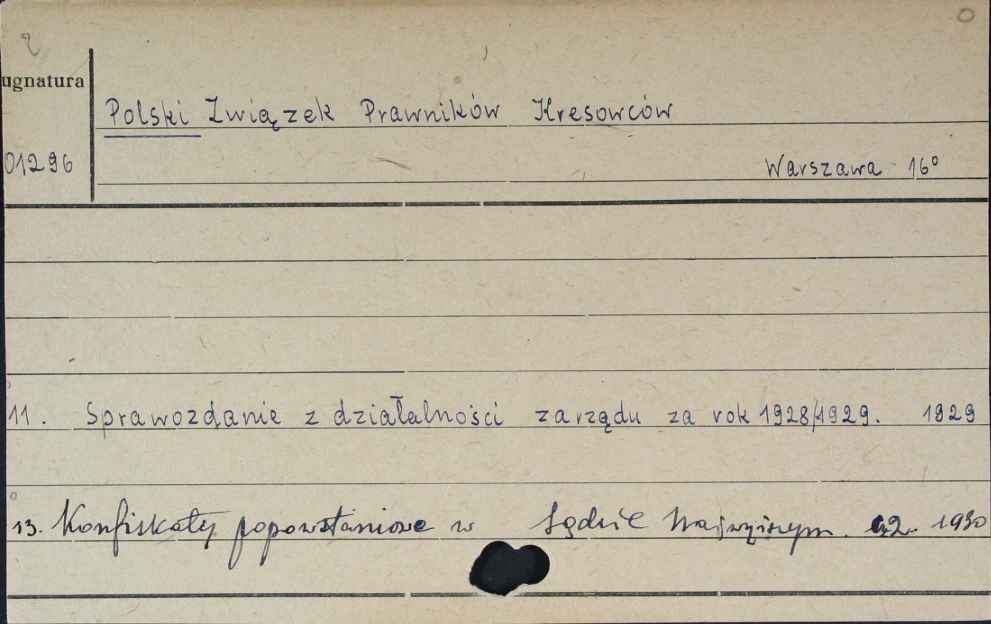 ugnatura
Polski Związek Prawników Kresowców
01296
Warszawa 16°
11. Sprawozdanie z działalności zarządu za rok 1928/1929. 1929
13. Konfiskaty popowstaniowe w Sądzie Najwyższym. 1930